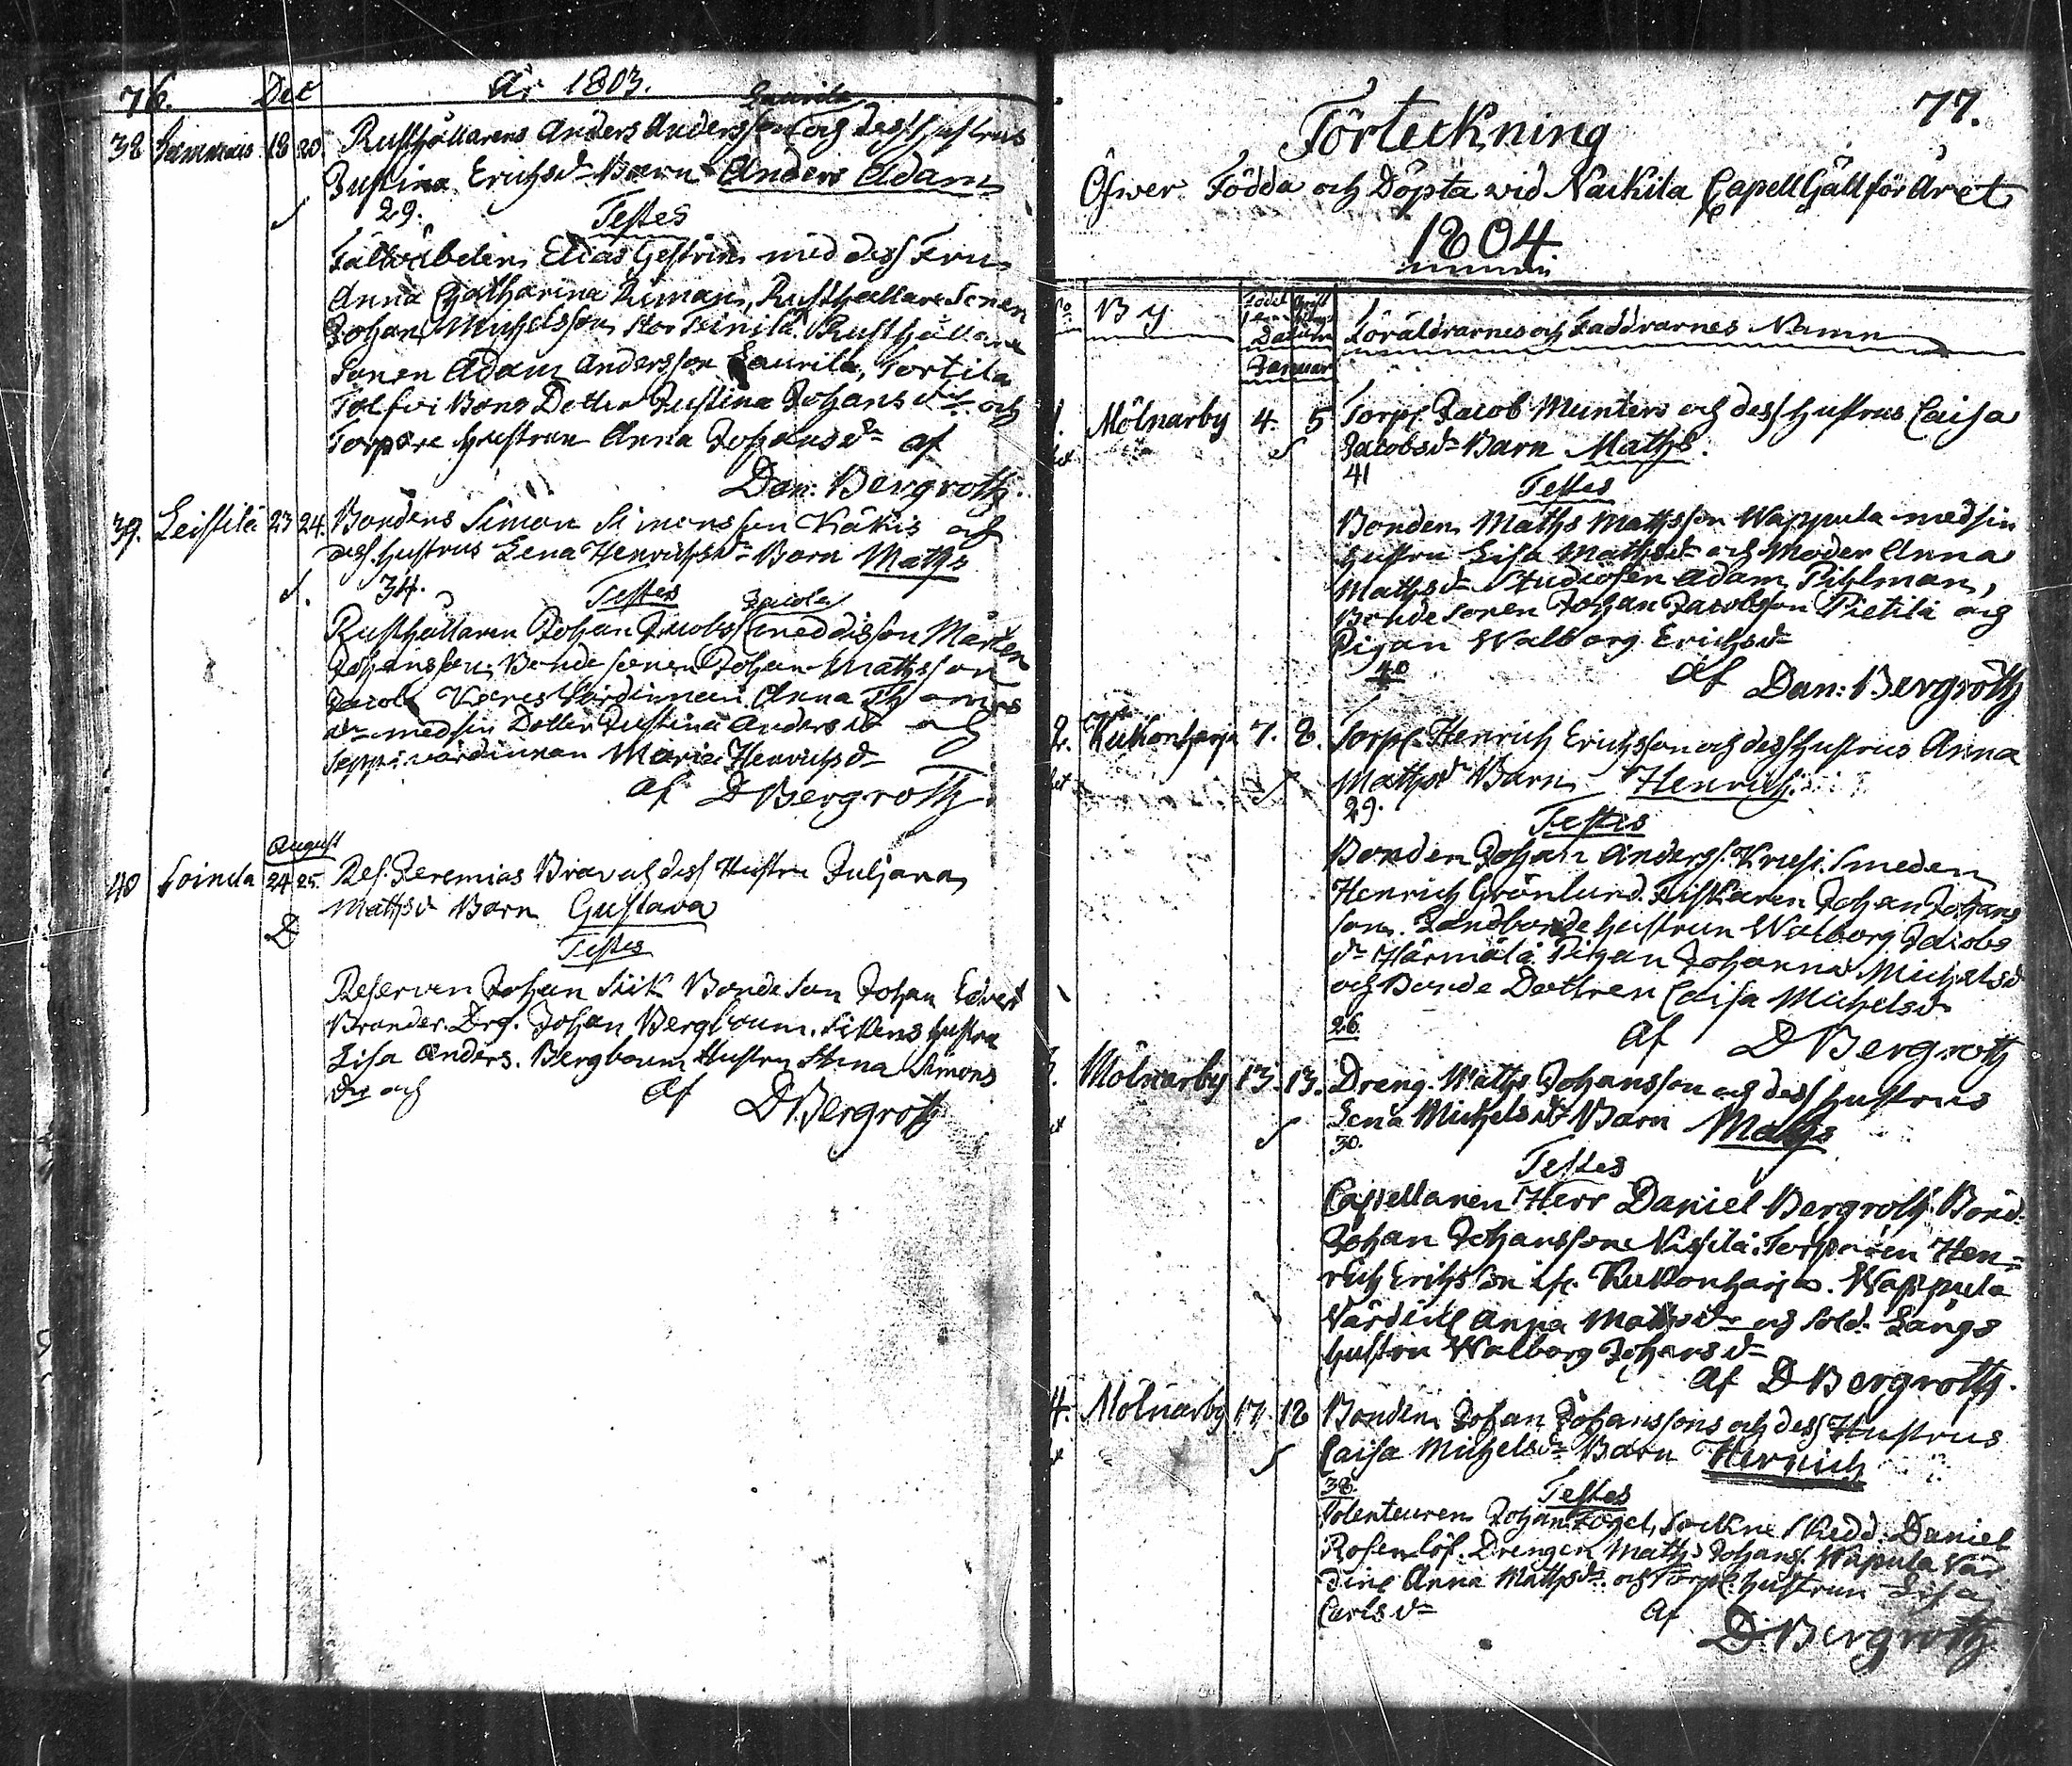 76. Dec År 1803.
Laurila
38 Tammais 18 20. Rusthållarens Anders Andersson och dess hustrus
Justina Erichsdr Barn Anders Adam
29. Testes
Fältväbelen Elias Gestrin med dess Fru
Anna Catharina Riman, Rusthållare Sonen
Johan Michelsson Rusthållare
Sonen Adam Andersson Laurila, Tortila
Bons Dotter Justina Johansdr och
Torpare hustrun Anna Johansdr af
Dan: Bergroth.
39. Leistilä 23 24. Bondens Simon Simonsson Käkis och
dess hustrus Lena Henrichsdr Barn Maths
34. Testes Jacola
Rusthållaren Johan Jacobss med dess son Mårten
Johansson. Bonde sonen Johan Mathsson
Jacola Värdinnan Anna Thomas
dr med sin Dotter Justina Andersdr och
Seppi värdinnan Maria Henrichsdr
af D Bergroth
August
40 Soinila 24 25. Res. Jeremias Brav och dess Hustru Juljana
Mathsdr Barn Gustava
D
Testes
Reserven Johan Siik Bonde Son Johan Edvert
Brander. Drg. Johan Bergboum. Sikens hustru
Lisa Anders. Bergboum Hustru Stina Simons
dr och af D. Bergroth
77.
Förteckning
Öfwer Födda och Döpta vid Nackila Capell Gäll för Året
1804
No. By Född Christ Datum Föräldrarnes och Faddrarnes Namn
Januar
1. Mölnarby 4. 5 Torp. Jacob Munters och dess hustrus Caisa
Jacobsdr Barn Maths.
41 Testes
Bonden Maths Mathsson Wappula med sin
hustru Lisa Mathsdr och Moder Anna
Mathsdr Studiosen Adam Pihlman,
Bonde Sonen Johan Jacobsson Pietilä och
Pigan Walborg Erichsdr
40 af Dan: Bergroth
2. Kukonharja 7. 8. Torp. Henrich Erichsson och dess hustrus Anna
Mathsdr Barn Henrich.
29. Testes
Bonden Johan Anderss. Krusi. Smeden
Henrich Grönlund. Fiskaren Johan Johans
son. Landbonde hustrun Walborg Jacobs
dr Härmälä. Pigan Johanna Michelsdr
och Bonde Dottren Caisa Michelsdr
26. af D Bergroth
3. Mölnarby 13. 13. Dreng. Maths Johansson och dess hustrus
Lena Michelsdr Barn Maths
30. Testes
Capellanen Herr Daniel Bergroth. Bond.
Johan Johansson Nissilä. Torparen Hen=
rich Erichsson ifr. Kukonharja. Wappula
Värdin Anna Mathsdr och Sold. Långs
hustru Walborg Johansdr
af D Bergroth.
4. Mölnarby 17. 18 Bonden Johan Johanssons och dess Hustrus
Caisa Michelsdr Barn Henrich
38. Testes
Volenteuren Johan Fogel, Sockne Skredd. Daniel
Rosenlöf. Drengen Maths Johanss. Wapula Vär
dine Anna Mathsdr och Torp. hustrun Lisa
Carlsdr af D. Bergroth